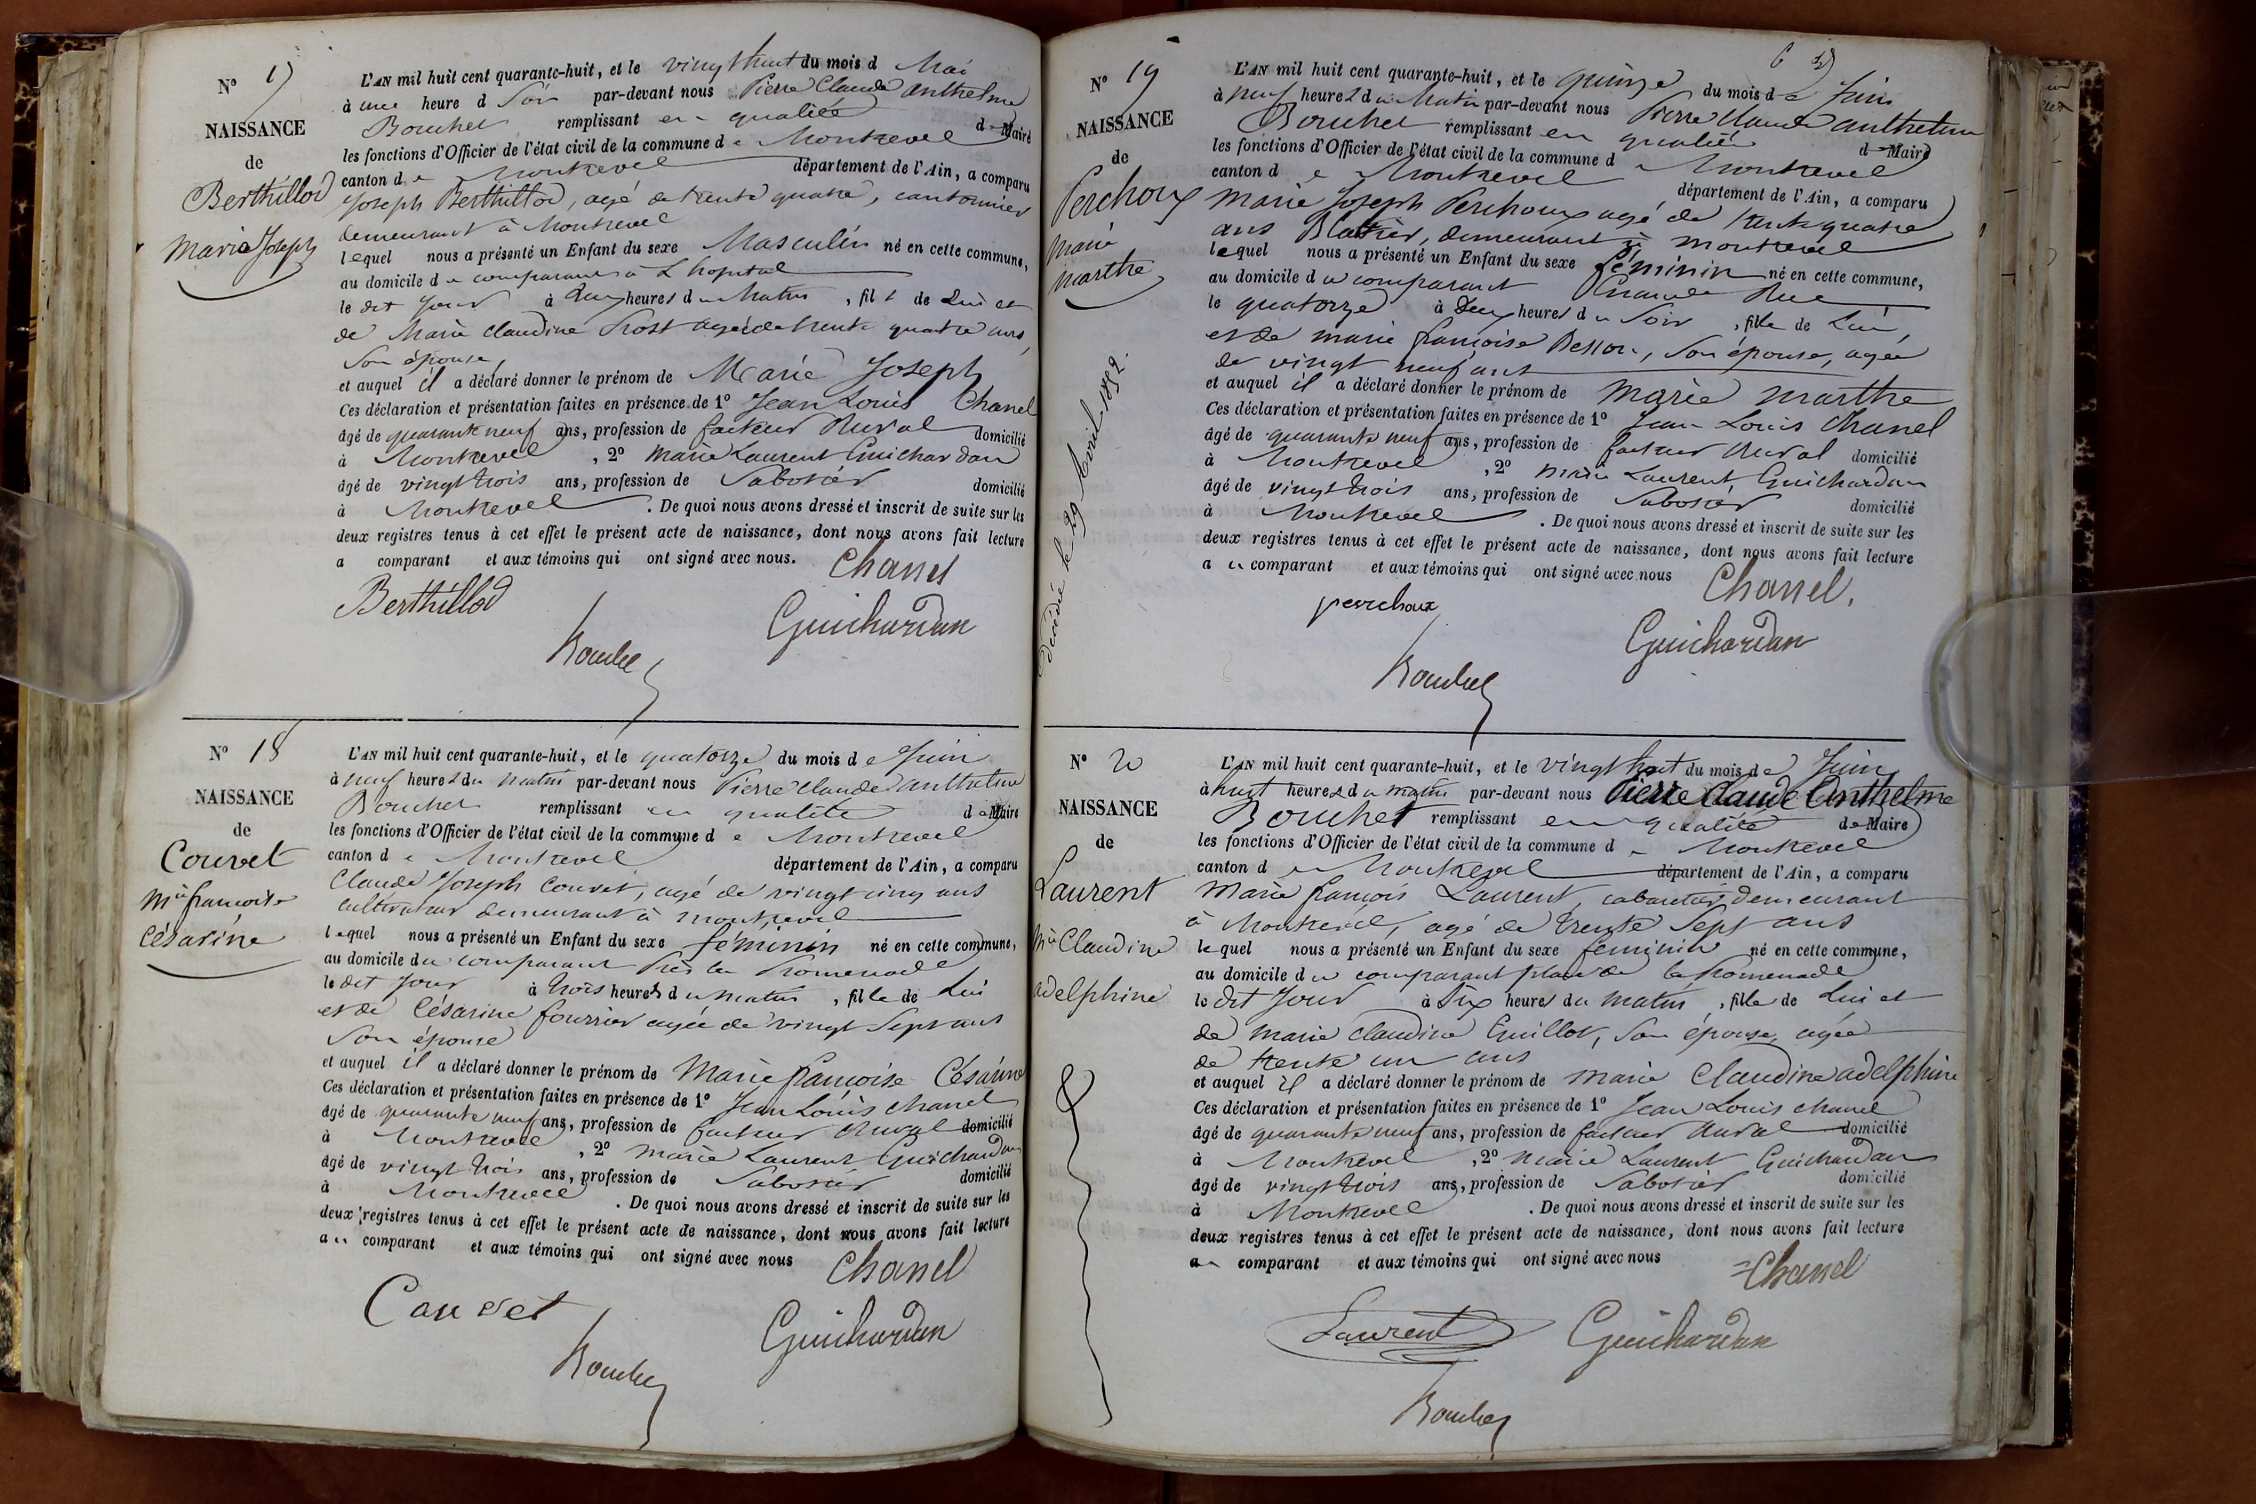 N° 17
NAISSANCE
de
Berthillod
Marie Joseph
L'AN mil huit cent quarante-huit, et le vingt huit du mois d Mai
à une heure d Soir par-devant nous Pierre Claude Anthelme
Bouchet remplissant en qualité de Maire
les fonctions d'Officier de l'état civil de la commune de Montrevel
canton de Montrevel département de l'Ain, a comparu
Joseph Berthillod, agé de trente quatre, cantonnier
demeurant à Montrevel
lequel nous a présenté un Enfant du sexe Masculin né en cette commune,
au domicile du comparant à L'hopital
le dit jour à Deux heures du Matin, fils de Lui et
de Marie Claudine Prost agée de trente quatre ans,
Son épouse,
et auquel il a déclaré donner le prénom de Marie Joseph
Ces déclaration et présentation faites en présence de 1° Jean Louis Chanel
âgé de quarante neuf ans, profession de facteur Rural domicilié
à Montrevel, 2° Marie Laurent Guichardan
âgé de vingt trois ans, profession de Sabotier domicilié
à Montrevel. De quoi nous avons dressé et inscrit de suite sur les
deux registres tenus à cet effet le présent acte de naissance, dont nous avons fait lecture
a comparant et aux témoins qui ont signé avec nous. Chanel
Berthillod
Guichardan
Bouchet
N° 18
NAISSANCE
de
Couvet
Mie francoise
Césarine
L'AN mil huit cent quarante-huit, et le quatorze du mois de Juin
à neuf heures du matin par-devant nous Pierre Claude Anthelme
Bouchet remplissant en qualité de Maire
les fonctions d'Officier de l'état civil de la commune de Montrevel
canton de Montrevel département de l'Ain, a comparu
Claude Joseph Couvet, agé de vingt cinq ans
cultivateur demeurant à Montrevel
lequel nous a présenté un Enfant du sexe féminin né en cette commune,
au domicile du comparant Près la Promenade
le dit jour à trois heures du matin, fille de Lui
et de Césarine fourrier agée de vingt Sept ans
Son épouse
et auquel il a déclaré donner le prénom de Marie françoise Césarine
Ces déclaration et présentation faites en présence de 1° Jean Louis Chanel
âgé de quarante neuf ans, profession de facteur Rural domicilié
à Montrevel, 2° Marie Laurent Guichardan
âgé de vingt trois ans, profession de Sabotier domicilié
à Montrevel. De quoi nous avons dressé et inscrit de suite sur les
deux registres tenus à cet effet le présent acte de naissance, dont nous avons fait lecture
au comparant et aux témoins qui ont signé avec nous Chanel
Couvet
Guichardan
Bouchet
N° 19
NAISSANCE
de
Perchoux
Marie
Marthe
Décédée le 29 Avril 1892.
L'AN mil huit cent quarante-huit, et le quinze du mois de Juin
à neuf heures du Matin par-devant nous Pierre Claude Anthelme
Bouchet remplissant en qualité de Maire
les fonctions d'Officier de l'état civil de la commune de Montrevel
canton de Montrevel département de l'Ain, a comparu
Marie Joseph Perchoux agé de trente quatre
ans Blatier, demeurant à Montrevel
lequel nous a présenté un Enfant du sexe féminin né en cette commune,
au domicile du comparant Grande Rue
le quatorze à Deux heures du Soir, fille de Lui,
et de marie françoise Besson, Son épouse, agée
de vingt neuf ans
et auquel il a déclaré donner le prénom de Marie Marthe
Ces déclaration et présentation faites en présence de 1° Jean Louis Chanel
âgé de quarante neuf ans, profession de facteur Rural domicilié
à Montrevel, 2° Marie Laurent Guichardan
âgé de vingt trois ans, profession de Sabotier domicilié
à Montrevel. De quoi nous avons dressé et inscrit de suite sur les
deux registres tenus à cet effet le présent acte de naissance, dont nous avons fait lecture
au comparant et aux témoins qui ont signé avec nous Chanel.
perchoux
Guichardan
Bouchet
N° 20
NAISSANCE
de
Laurent
Mie Claudine
adelphine
L'AN mil huit cent quarante-huit, et le vingt huit du mois de Juin
à huit heures du matin par-devant nous Pierre Claude Anthelme
Bouchet remplissant en qualité de Maire
les fonctions d'Officier de l'état civil de la commune de Montrevel
canton de Montrevel département de l'Ain, a comparu
Marie françois Laurent, cabaretier demeurant
à Montrevel, agé de trente Sept ans
lequel nous a présenté un Enfant du sexe féminin né en cette commune,
au domicile du comparant place de la Promenade
le dit Jour à Six heures du matin, fille de Lui et
de marie claudine Guillot, Son épouse, agée
de trente un ans
et auquel il a déclaré donner le prénom de marie Claudine adelphine
Ces déclaration et présentation faites en présence de 1° Jean Louis Chanel
âgé de quarante neuf ans, profession de facteur Rural domicilié
à Montrevel, 2° Marie Laurent Guichardan
âgé de vingt trois ans, profession de Sabotier domicilié
à Montrevel. De quoi nous avons dressé et inscrit de suite sur les
deux registres tenus à cet effet le présent acte de naissance, dont nous avons fait lecture
au comparant et aux témoins qui ont signé avec nous
Chanel
Laurent Guichardan
Bouchet